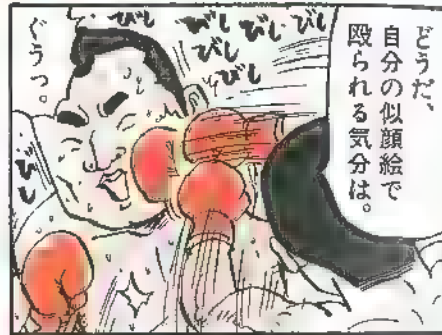 どうだ、
自分の似顔絵で
殴られる気分は。
びし
びし
びし
びし
びし
びし
ぐうっ。
びし